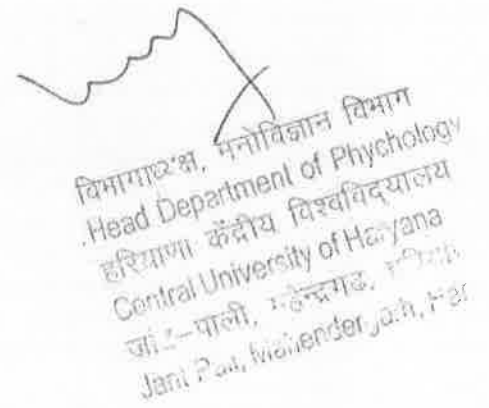 विभागाध्यक्ष, मनोविज्ञान विभाग
.Head Department of Phychology
हरियाणा केंद्रीय विश्वविद्यालय
Central University of Haryana
महेन्द्रगढ,
Jant Pali, Mahendergarh, Har